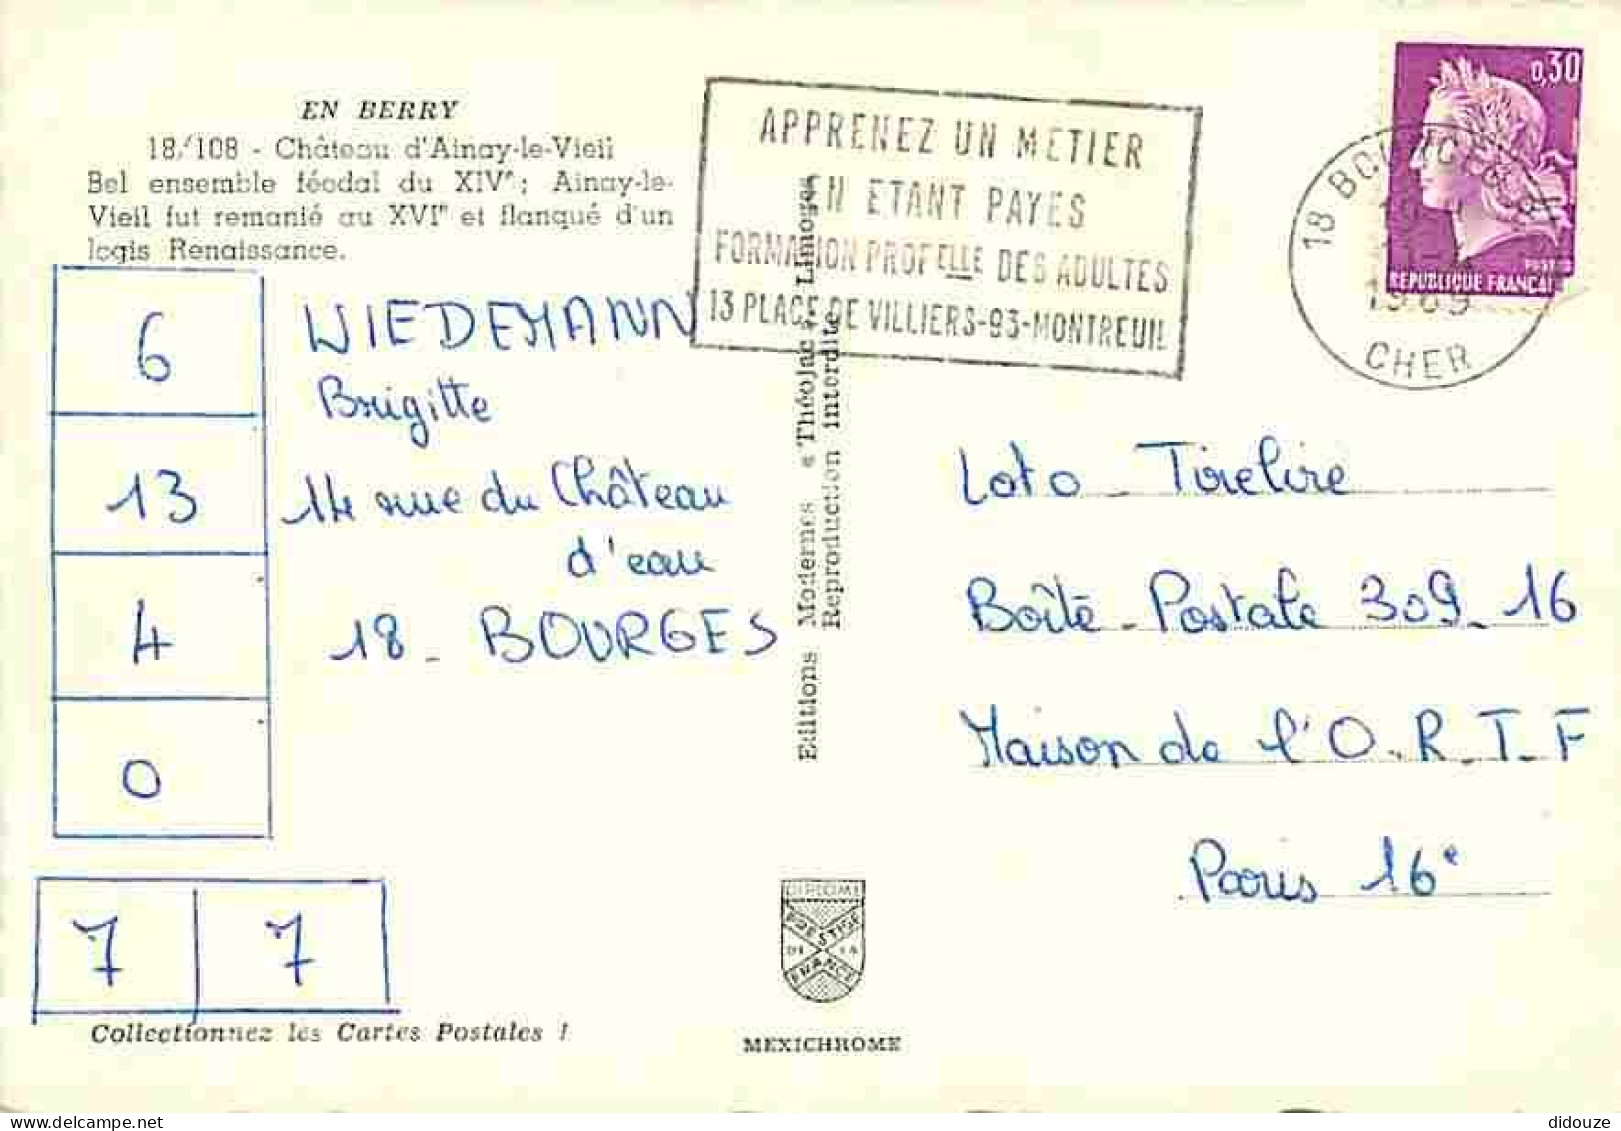 EN BERRY
18/108 - Château d'Ainay-le-Vieil
Bel ensemble féodal du XIVe; Ainay-le-
Vieil fut remanié au XVIe et flanqué d'un
logis Renaissance.
6
13
4
0
7 7
WIEDEMANN
Brigitte
14 rue du Château
d'eau
18 - BOURGES
Collectionnez les Cartes Postales !
APPRENEZ UN METIER
EN ETANT PAYES
FORMATION PROFELLE DES ADULTES
13 PLACE DE VILLIERS-93-MONTREUIL
Editions Modernes « Théojac » Limoges
Reproduction interdite
0,30
POSTES
REPUBLIQUE FRANCAISE
18 BOURGES
1969
CHER
Loto - Tirelire
Boîte - Postale 309 - 16
Maison de l'O.R.T.F
Paris 16e
DIPLOME
PRESTIGE
DE LA
FRANCE
MEXICHROME
didouze